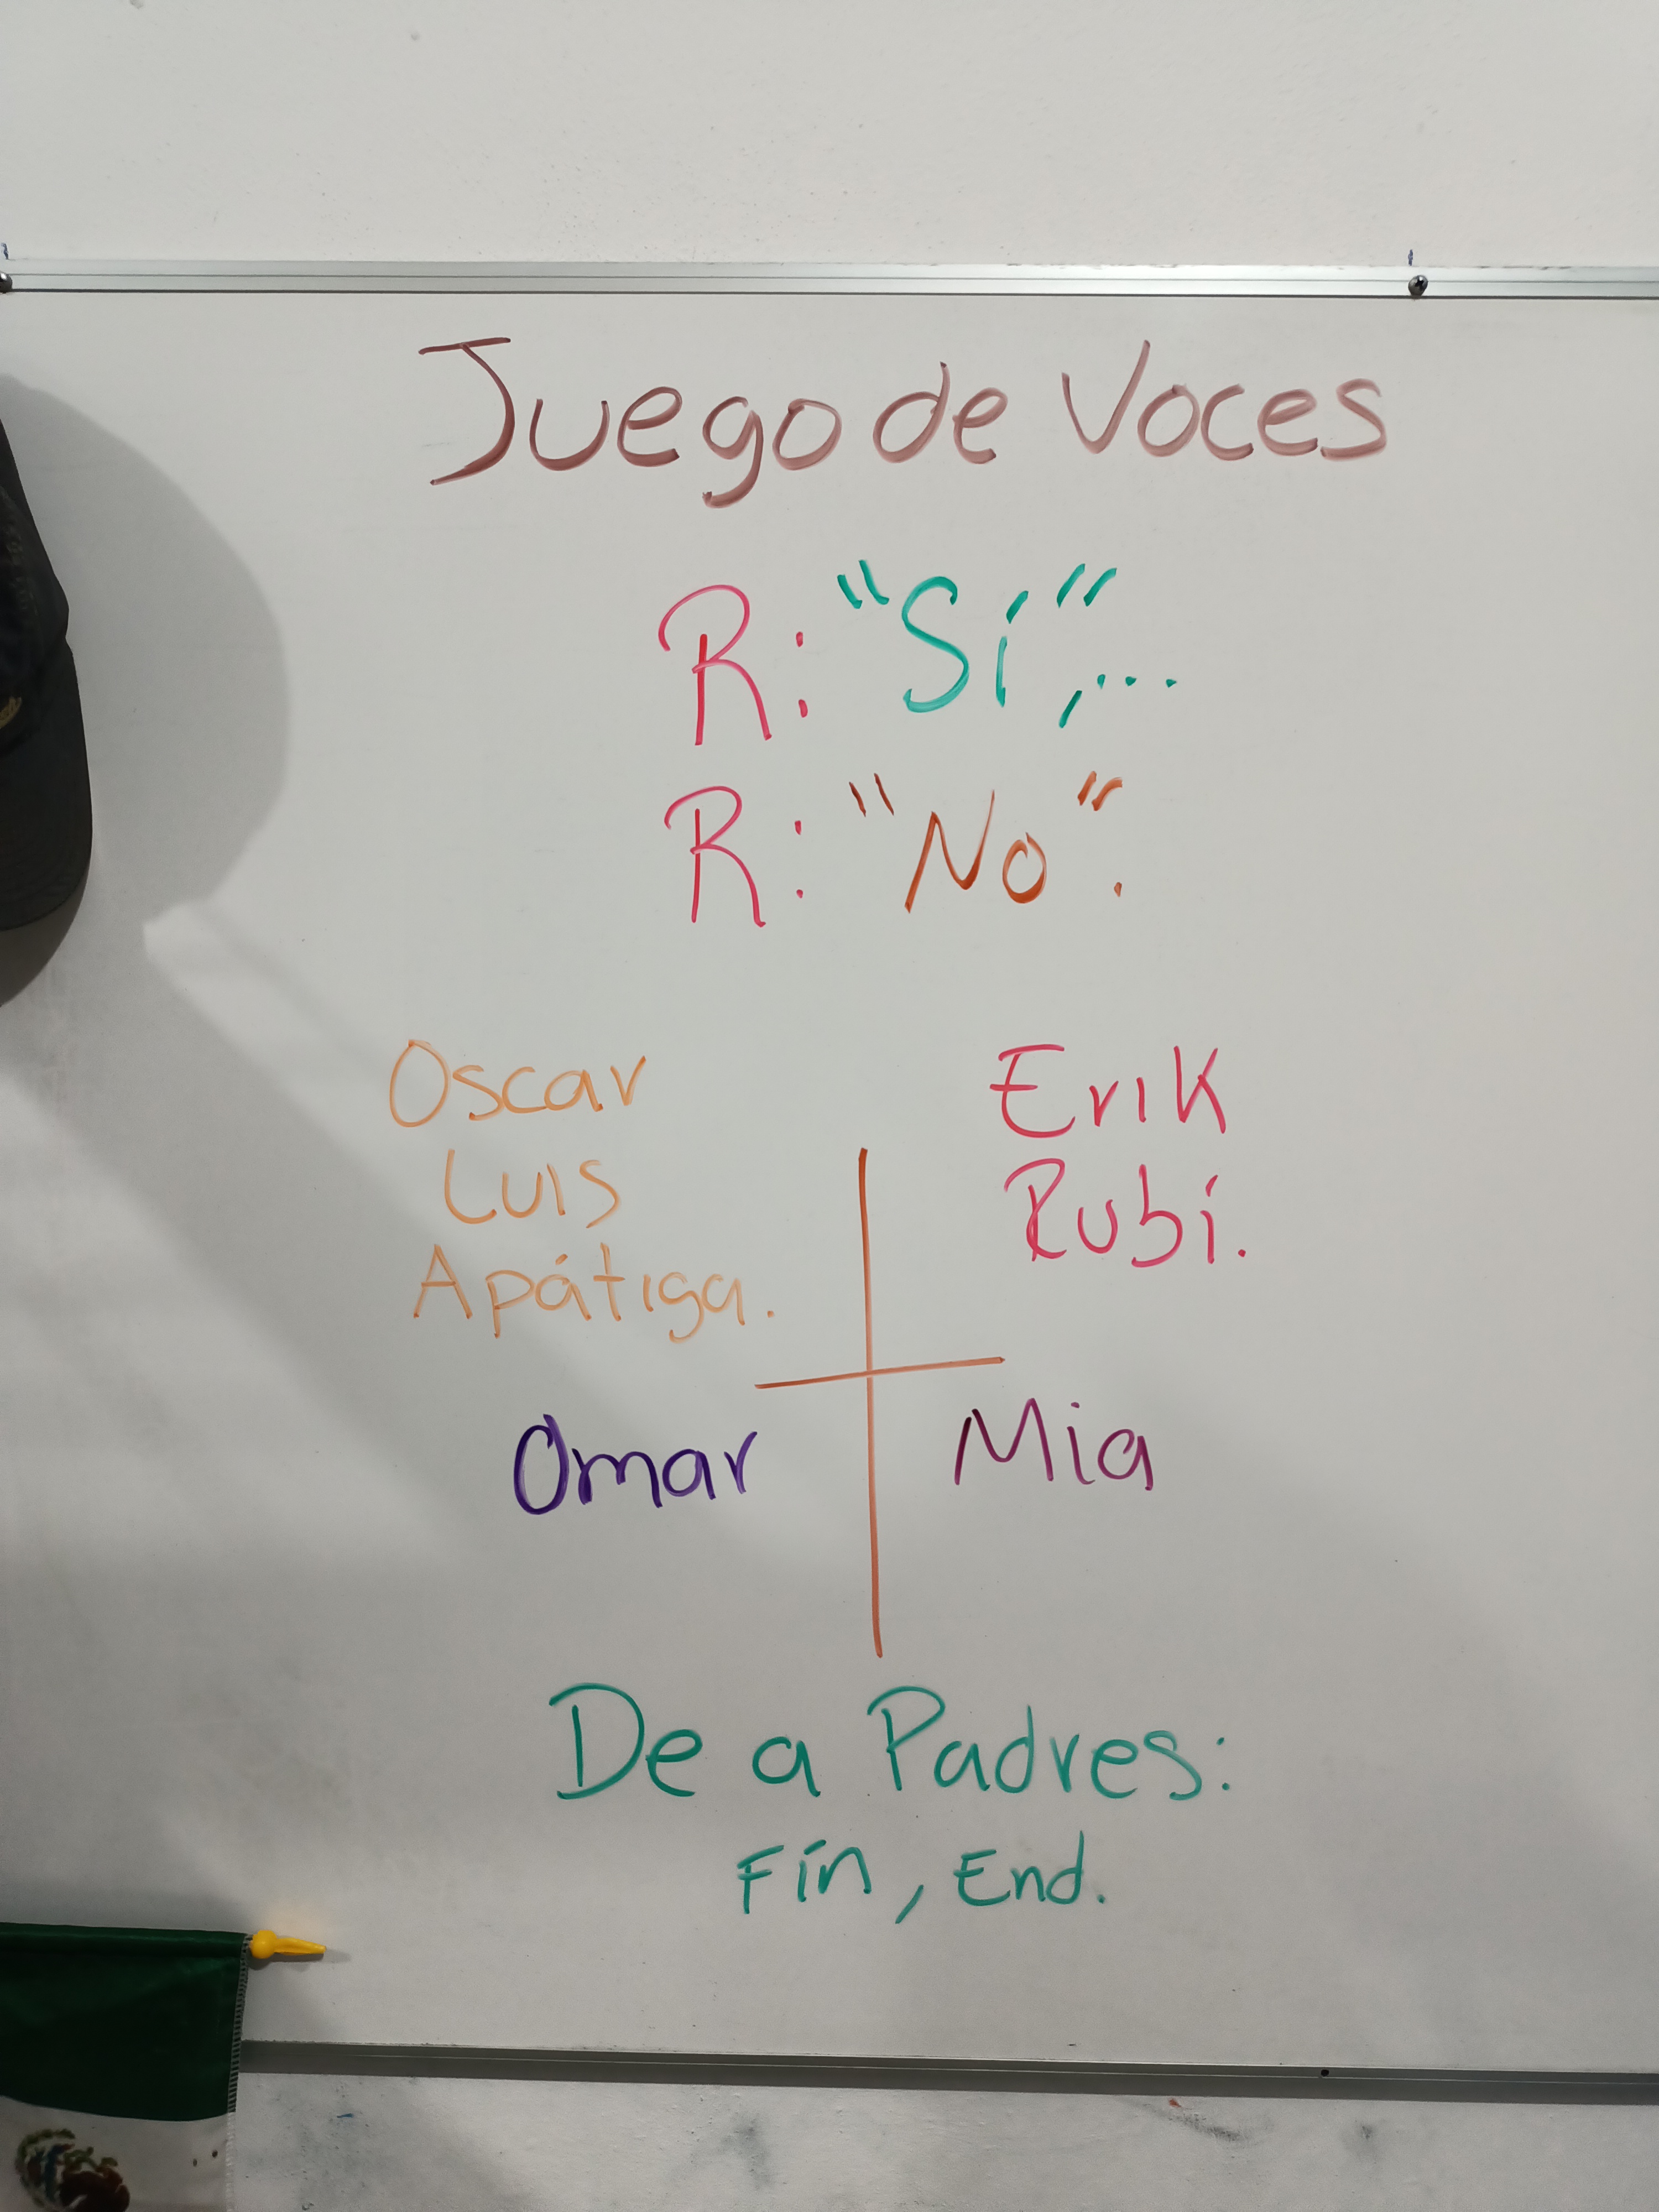 Juego de Voces
R: "Sí",...
R: "No".
Oscar
Luis
Apátiga.
Erik
Rubí.
Omar
Mia
De a Padres:
Fín, End.